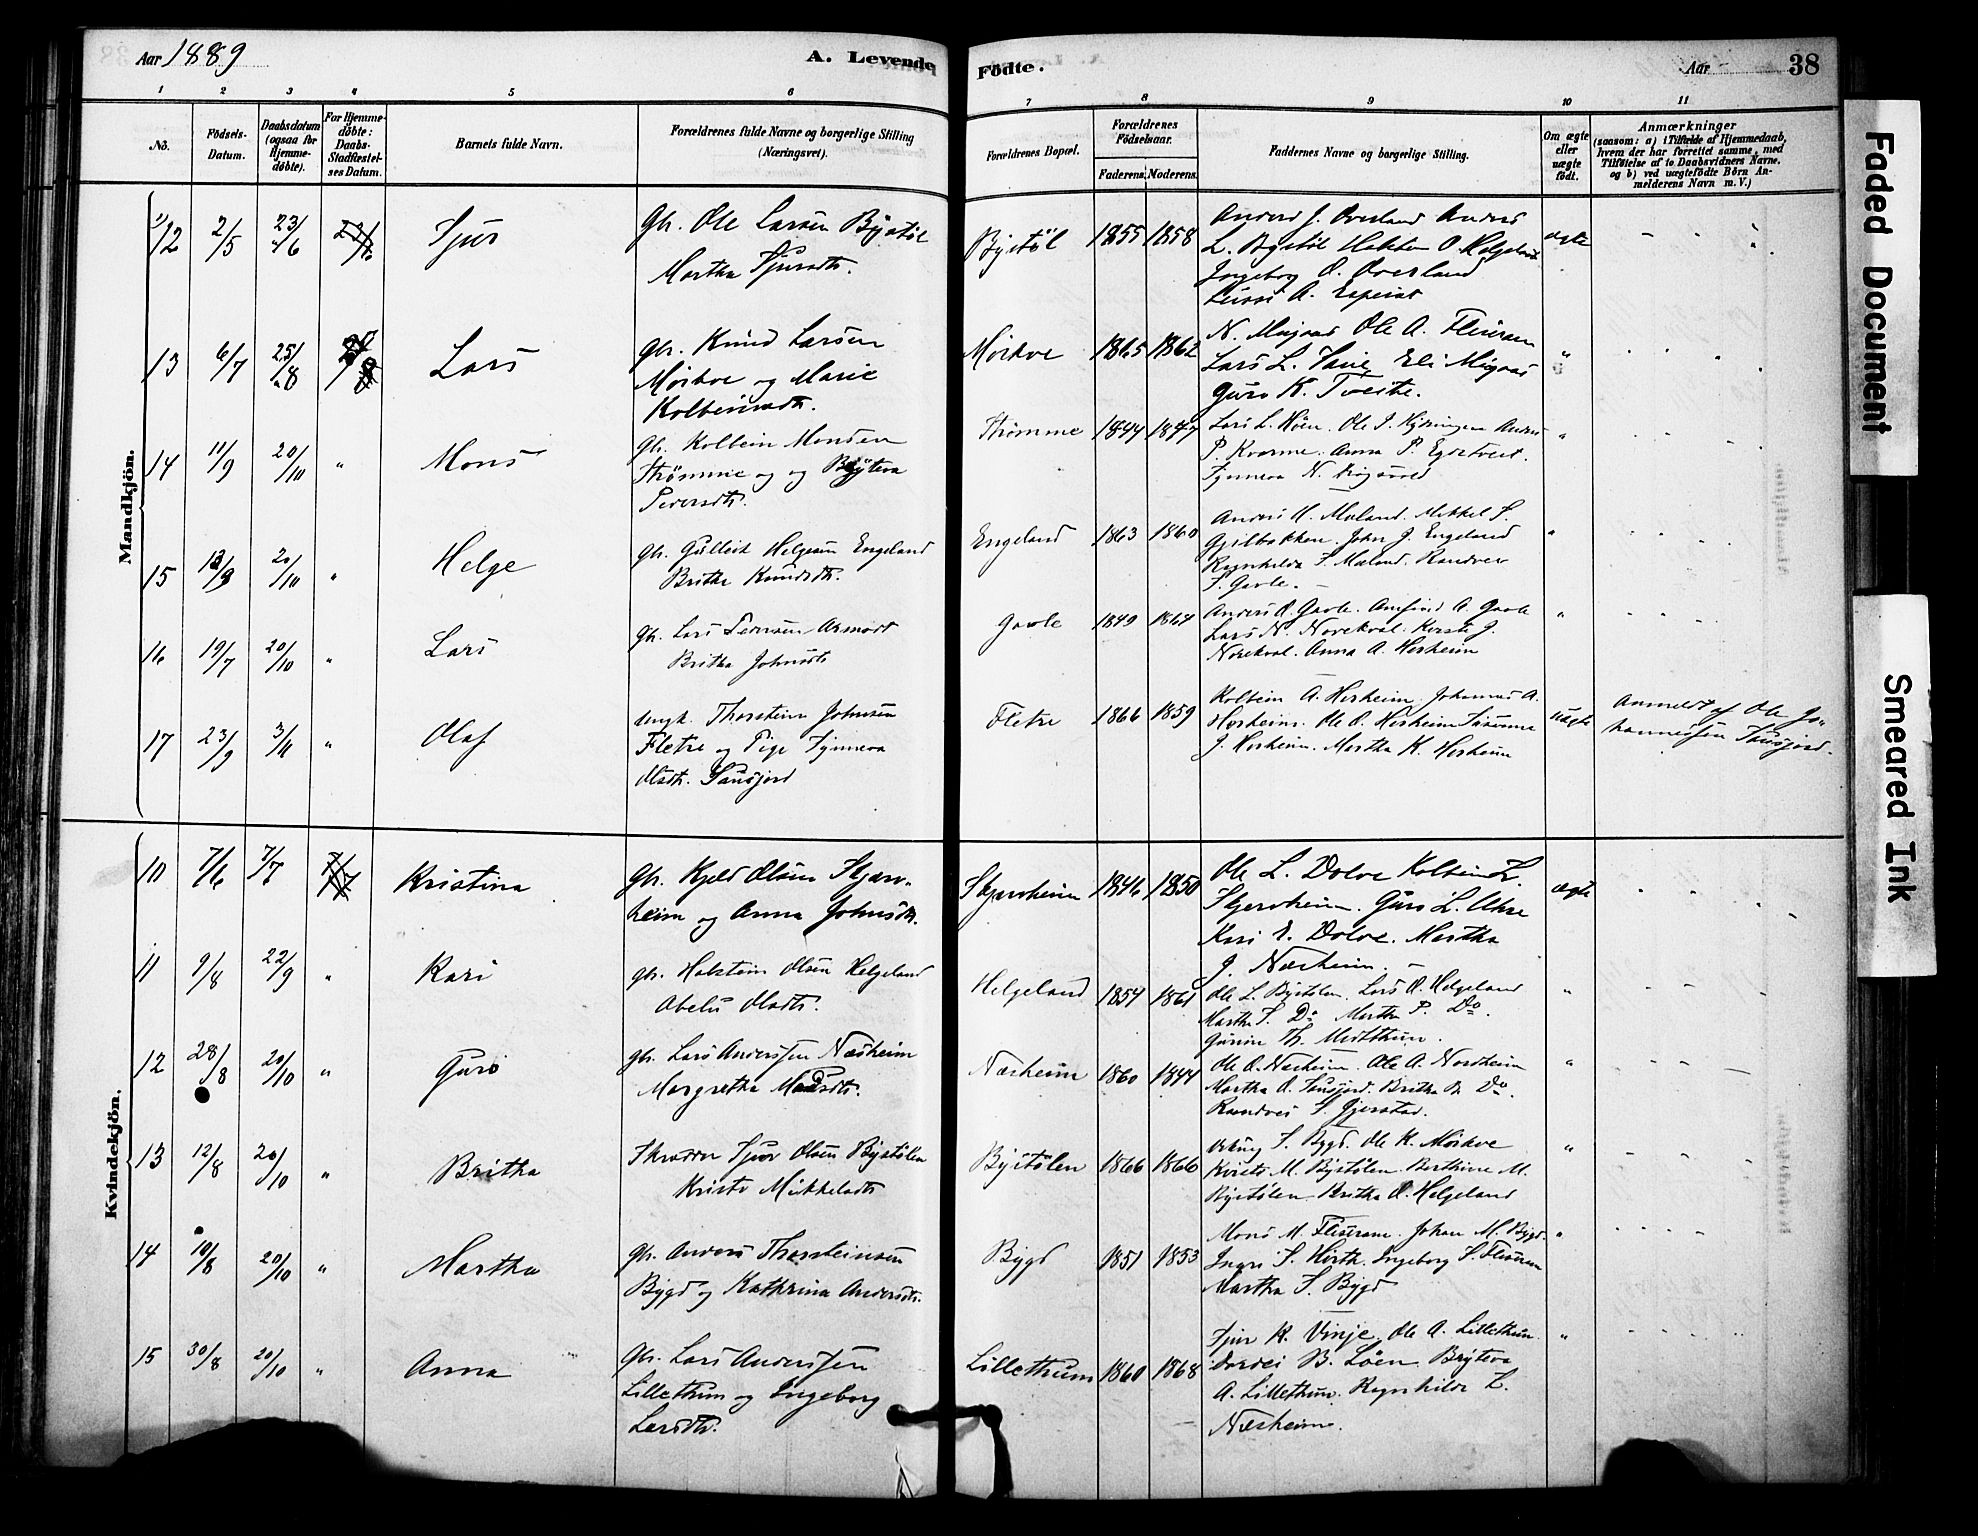 Aar 1889
A. Levende Födte.
Aar
38
1 2 3 4 5 6 7 8 9 10 11
No.
Födsels-Datum.
Daabsdatum (ogsaa for Hjemmedöbte).
For Hjemmedöbte: Daabs-Stadfæstelses Datum.
Barnets fulde Navn.
Forældrenes fulde Navne og borgerlige Stilling (Næringsvei).
Forældrenes Bopæl.
Forældrenes Födselsaar.
Faderens. Moderens.
Faddernes Navne og borgerlige Stilling.
Om ægte eller uægte födt.
Anmærkninger
(saasom: a) i Tilfælde af Hjemmedaab, hvem der har forrettet samme, med Tilföielse af to Daabsvidners Navne, og b) ved uægtefödte Börn Anmelderens Navn m. V.)
Mandkjön.
12 2/5 23/6 Sjur
Gb. Ole Larsen Bystöl
Martha Sjursdtr.
Bystöl 1855 1858
Anders J. Överland Anders
L. Bystöl Halsten O. Helgeland
Ingeborg O. Överland
A.
ægte
13 6/7 25/8 Lars
Gb. Knud Larsen
Mörkve og Marie
Kolbeinsdtr.
Mörkve 1865 1862
N. Ole A.
Lars L. Eli
Guro K. Tveite.
"
14 11/9 20/10 " Mons
Gb. Kolbein Monsen
Strömme og og Bryteva
Pedersdtr.
Strömme 1844 1847
Lars L. Ole J. Anders
P. Kvarme. Anna P.
N.
"
15 13/9 20/10 " Helge
Gb. Gulleik Helgesen Engeland
Britha Knudsdtr.
Engeland 1863 1860
Anders M. Mæland. Mikkel S.
Gjilbakken. John J. Engeland
Ragnhilda S. Mæland. Randvei
S. Gavle.
"
16 19/7 20/10 " Lars
Gb. Lars Pedersen
Britha Johnsdtr
Gavle 1849 1864
Anders O. Gavle. Arnfind A. Gavle
Lars N. Norekval. J.
Norekval. Anna A. Herheim
"
17 23/9 3/11 " Olaf
Ungk. Thorstein Johnsen
Fletre og Pige Synneva
Olsdtr. Sausjord
Fletre 1866 1859
Kolbein A. Herheim. Johannes A.
Herheim. Ole O. Herheim
J. Herheim. Martha K. Herheim
uægte
Anmeldt af Ole Jo-
hannessen Sausjord.
Kvindekjön.
10 7/6 7/7 Kristina
Gb. Kjeld Olsen Skjerv-
heim og Anna Johnsdtr.
Skjervheim 1846 1850
Ole L. Dolve Kolbein L.
Skjervheim. Guro L.
Kari E. Dolve. Martha
J. Næsheim.
ægte
11 9/8 22/9 " Kari
gb. Halstein Olsen Helgeland
Olsdtr.
Helgeland 1854 1861
Ole L. Bystölen. Lars O. Helgeland
Martha S. Do Martha P. Do.
Th. Midtthun.
"
12 28/8 20/10 " Guro
gb. Lars Anderssen Næsheim
Margretha Madsdtr.
Næsheim 1860 1844
Ole O. Næsheim. Ole A. Nordheim
Martha O. Sausjord. Britha Do.
Randvei S. Gjerstad.
"
13 12/8 20/10 " Britha
Skrædder Sjur Olsen Bystölen
Kristi Mikkelsdtr
Bystölen 1866 1866
S. Bygd. Ole K. Mörkve
Kristi M. Bystölen. Berthine M.
Bystölen. Britha O. Helgeland
"
14 10/8 20/10 " Martha
gb. Anders Thorsteinsen
Bygd og Kathrina Andersdtr.
Bygd 1851 1853
Mons M. Johan M. Bygd.
S. Ingeborg S.
Martha S. Bygd
"
15 30/8 20/10 " Anna
Gb. Lars Anderssen
Lillethun og Ingeborg
Larsdtr.
Lillethun 1860 1868
Sjur K. Vinje. Ole A. Lillethun.
B. Löen. Bryteva
A. Lillethun. Ragnhilda L.
Næsheim.
"
Faded Document
Smeared Ink